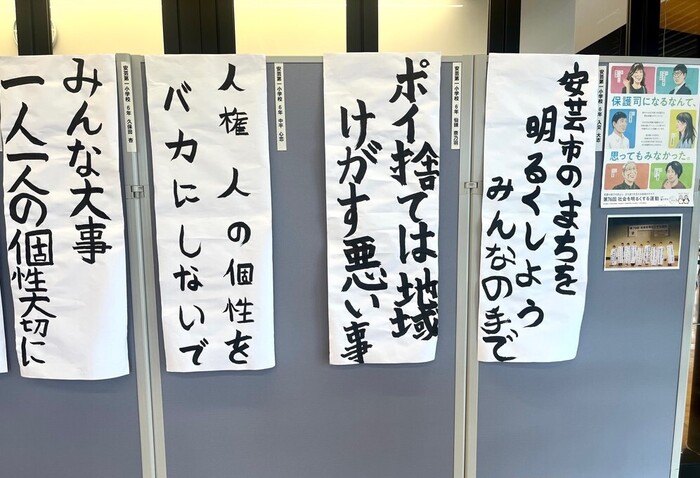 保護司になるなんて、
思ってもみなかった。
社会を明るくする運動
安芸第一小学校 6年 入交
安芸市のまちを
明るくしよう
みんなの手で
安芸第一小学校 6年 仙頭
ポイ捨ては地域
けがす悪い事
安芸第一小学校 6年 中平
人権 人の個性を
バカにしないで
安芸第一小学校 6年 久保田 杏
みんな大事
一人一人の個性大切に